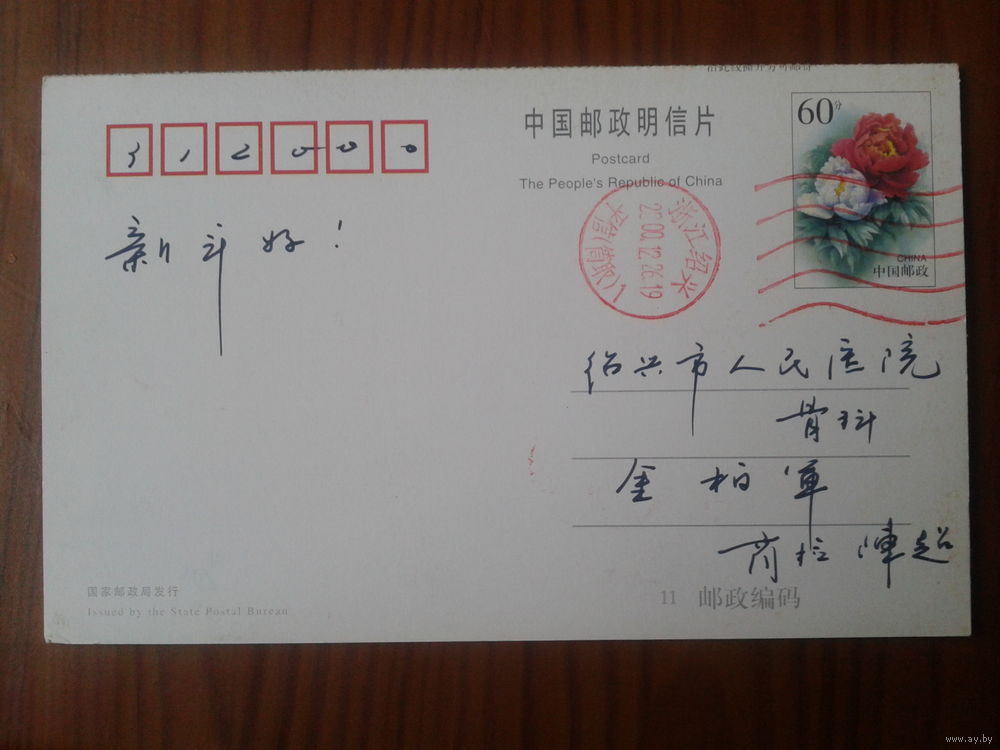 中国邮政明信片
Postcard
The People's Republic of China
60分
CHINA
中国邮政
312000
浙江绍兴
2000.12.26.19
新年好！
绍兴市人民医院
骨科
金柏军
商检 陳超
国家邮政局发行
Issued by the State Postal Bureau
11 邮政编码
www.ay.by